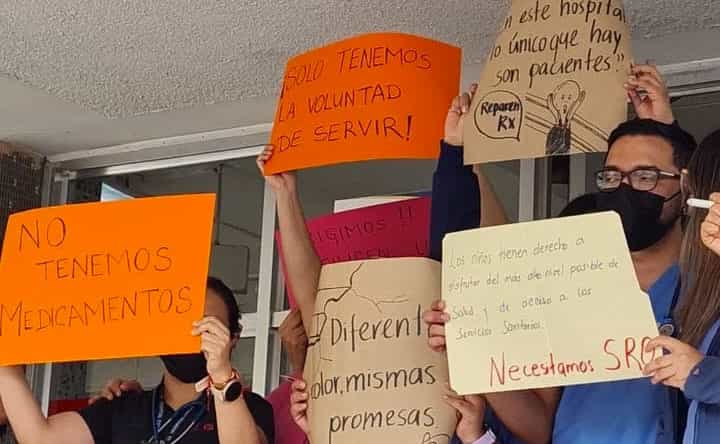 NO
TENEMOS
MEDICAMENTOS
¡SOLO TENEMOS
LA VOLUNTAD
DE SERVIR!
n este hospital
lo único que hay
son pacientes."
Reparen
Rx
Diferent
olor, mismas
promesas.
Los niños tienen derecho a
disfrutar del más alto nivel posible de
Salud y de acceso a los
Servicios Sanitarios.
Necesitamos SR